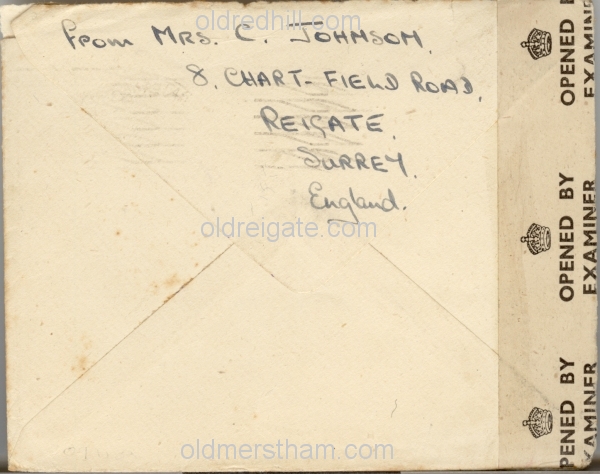 oldredhill.com
From MRS. C. JOHNSON.
8, CHART-FIELD ROAD,
REIGATE,
SURREY.
England.
oldreigate.com
oldmerstham.com
OPENED BY
EXAMINER
OPENED BY
EXAMINER
PENED BY
XAMINER